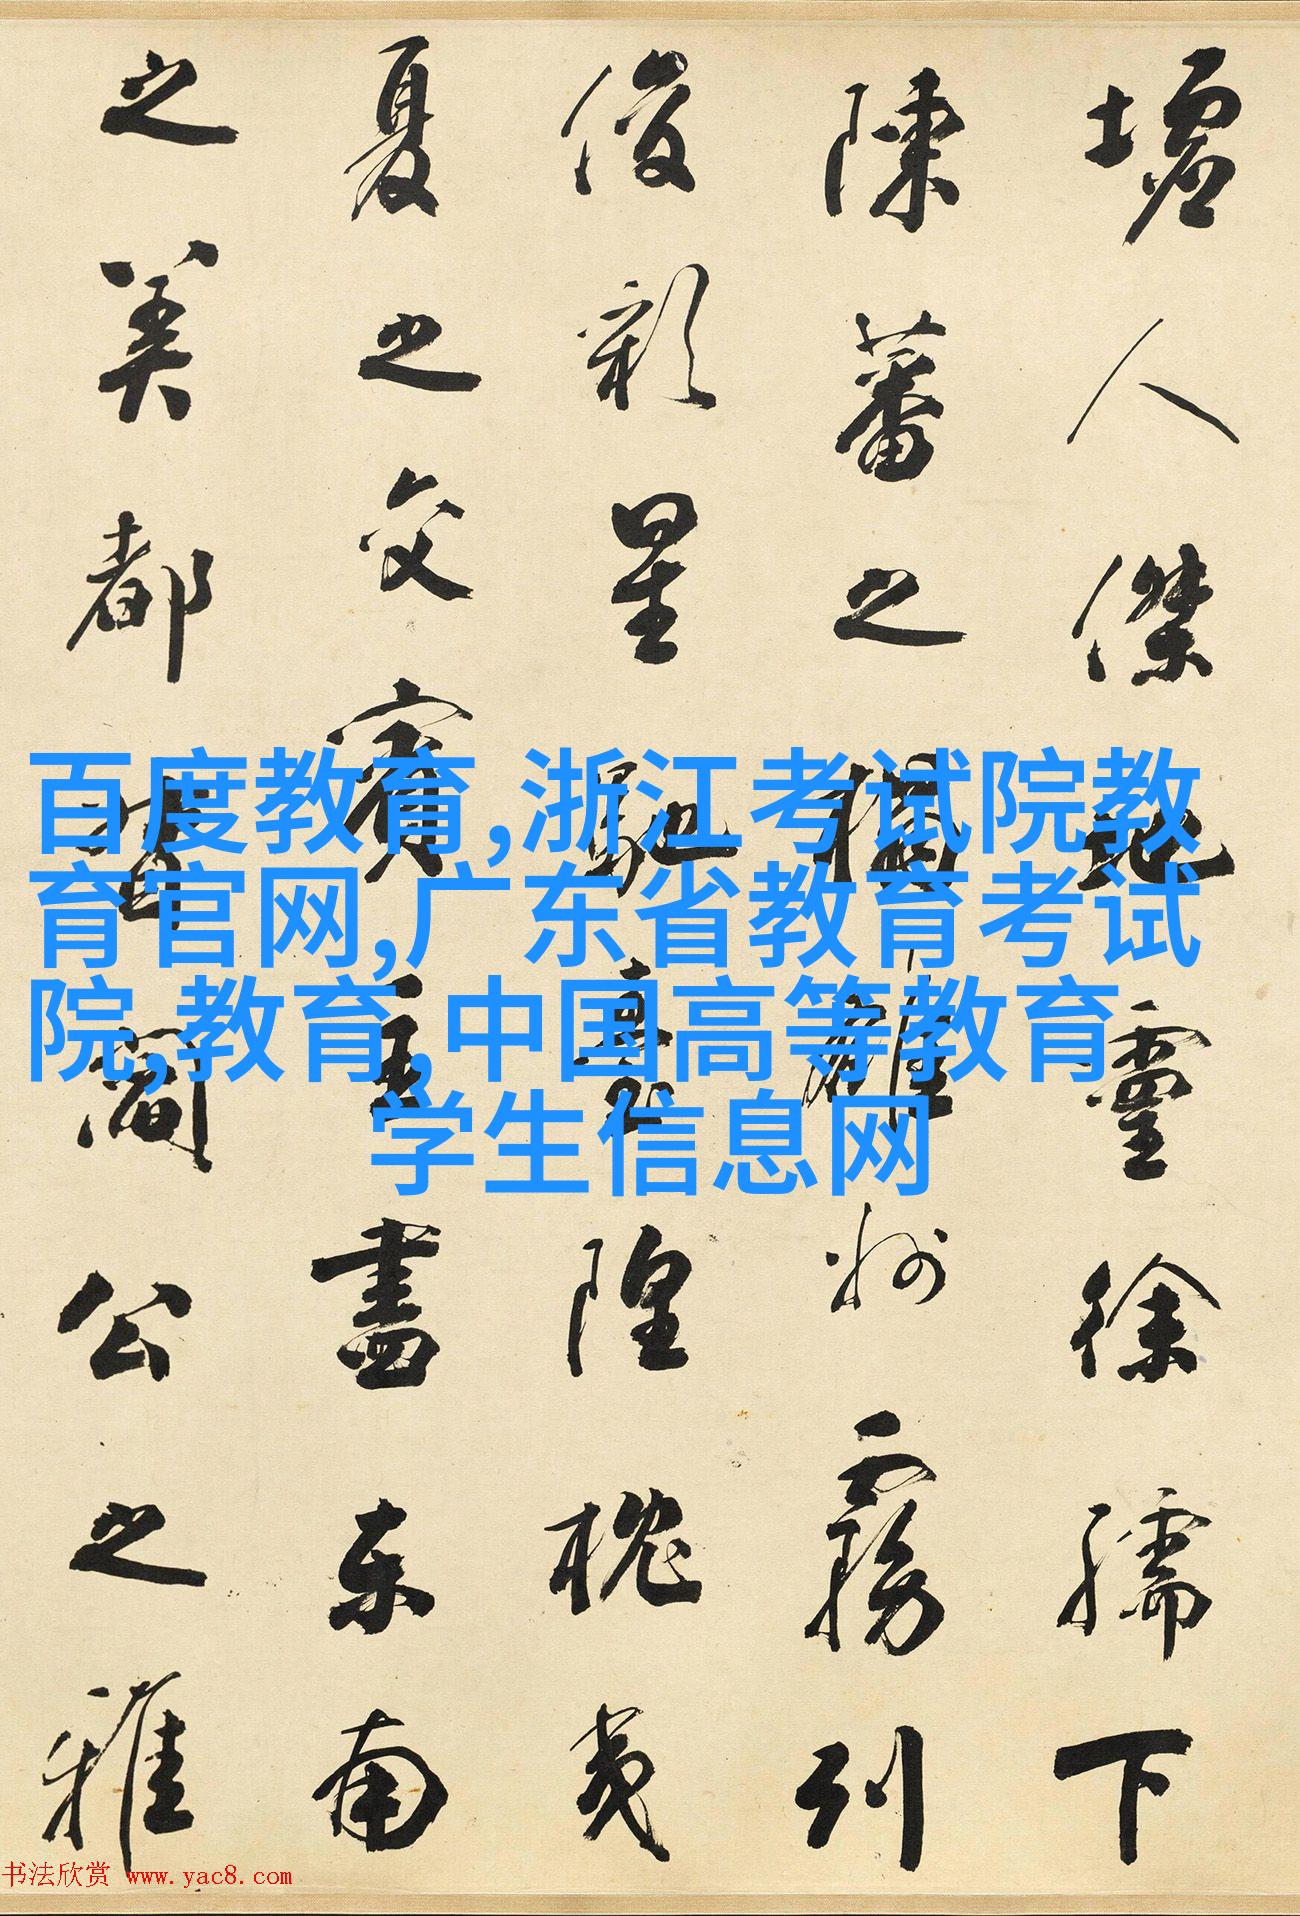 墟人傑地靈徐孺下
陳蕃之榻雄州霧列
俊彩星馳臺隍枕夷
夏之交賓主盡東南
之美都督閻公之雅
百度教育,浙江考试院教
育官网,广东省教育考试
院,教育,中国高等教育
学生信息网
书法欣赏 www.yac8.com